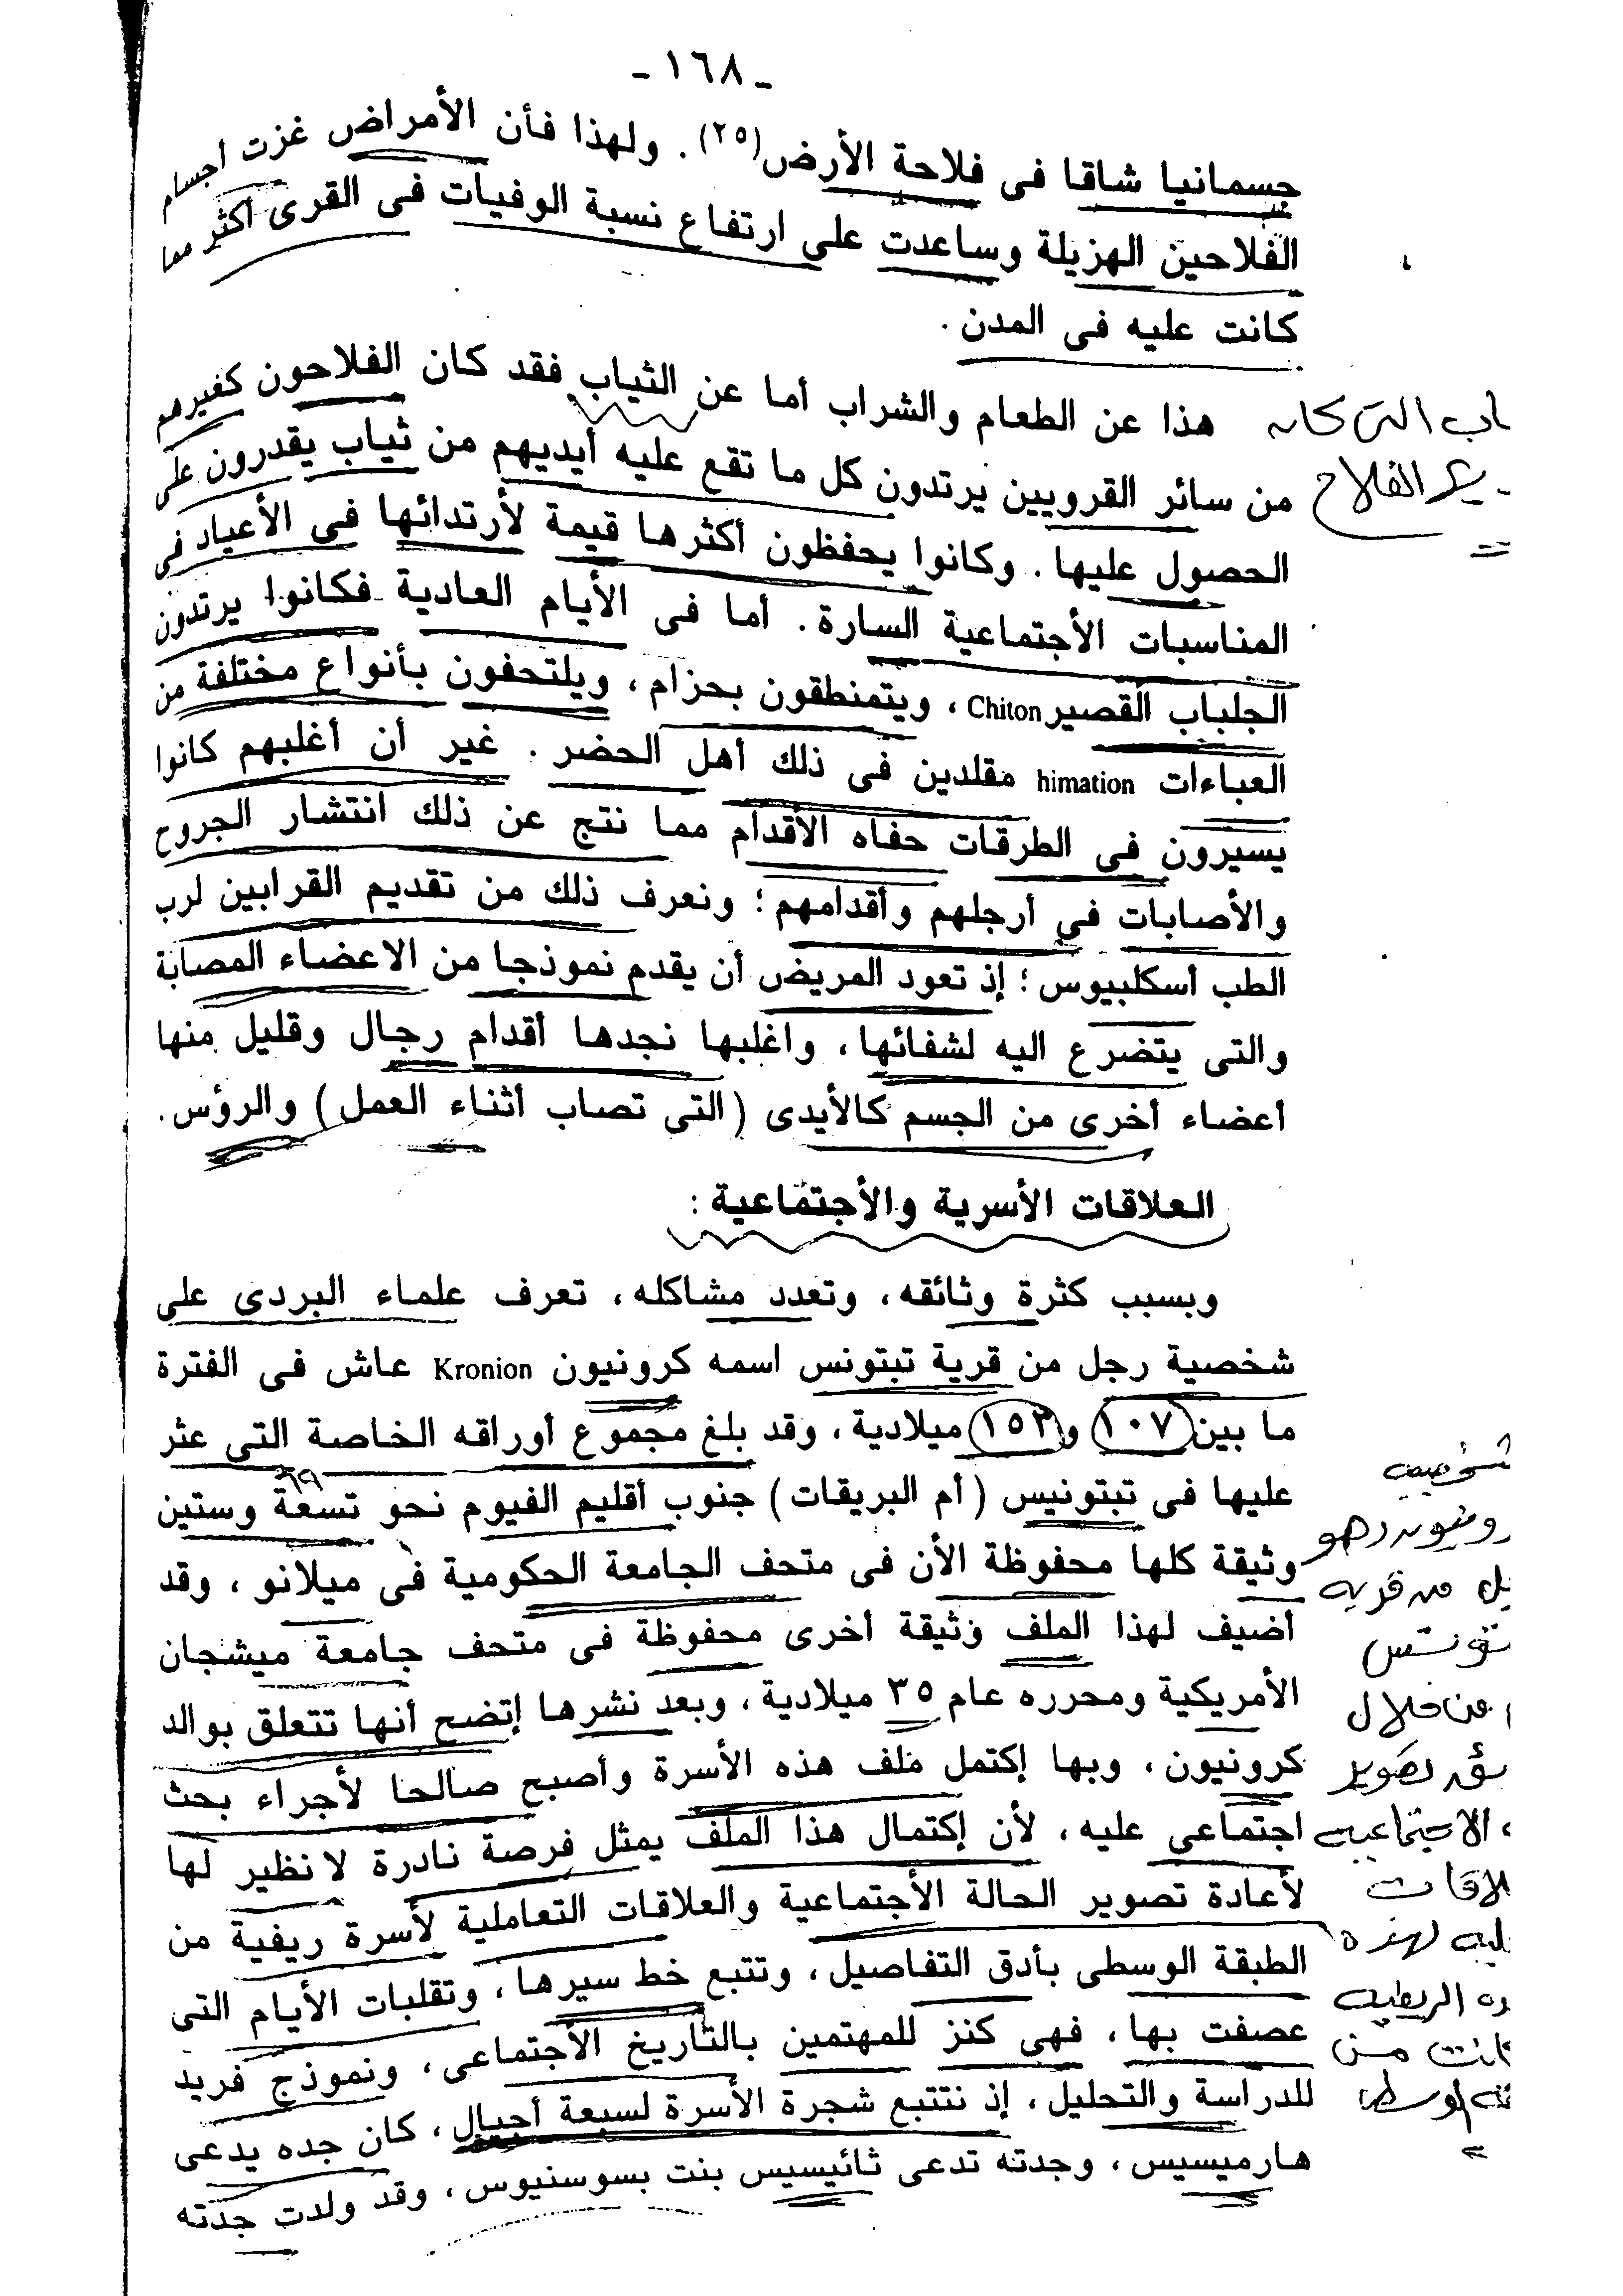 - ١٦٨ -
جسمانيا شاقا فى فلاحة الأرض(٢٥). ولهذا فأن الأمراض غزت أجسام
الفلاحين الهزيلة وساعدت على ارتفاع نسبة الوفيات فى القرى أكثر مما
كانت عليه فى المدن.
هذا عن الطعام والشراب أما عن الثياب فقد كان الفلاحون كغيرهم
من سائر القرويين يرتدون كل ما تقع عليه أيديهم من ثياب يقدرون على
الحصول عليها. وكانوا يحفظون أكثرها قيمة لأرتدائها فى الأعياد فى
المناسبات الأجتماعية السارة. أما فى الأيام العادية فكانوا يرتدون
الجلباب القصير Chiton، ويتمنطقون بحزام، ويلتحفون بأنواع مختلفة من
العباءات himation مقلدين فى ذلك أهل الحضر. غير أن أغلبهم كانوا
يسيرون فى الطرقات حفاه الأقدام مما نتج عن ذلك انتشار الجروح
والأصابات فى أرجلهم وأقدامهم؛ ونعرف ذلك من تقديم القرابين لرب
الطب أسكلبيوس؛ إذ تعود المريض أن يقدم نموذجا من الاعضاء المصابة
والتى يتضرع اليه لشفائها، وأغلبها نجدها أقدام رجال وقليل منها
أعضاء أخرى من الجسم كالأيدى (التى تصاب أثناء العمل) والرؤس.
العلاقات الأسرية والأجتماعية:
وبسبب كثرة وثائقه، وتعدد مشاكله، تعرف علماء البردى على
شخصية رجل من قرية تبتونس اسمه كرونيون Kronion عاش فى الفترة
ما بين ١٠٧ و١٥٣ ميلادية، وقد بلغ مجموع أوراقه الخاصة التى عثر
عليها فى تبتونيس (أم البريقات) جنوب أقليم الفيوم نحو تسعة وستين
٦٩
وثيقة كلها محفوظة الأن فى متحف الجامعة الحكومية فى ميلانو، وقد
أضيف لهذا الملف وثيقة أخرى محفوظة فى متحف جامعة ميشجان
الأمريكية ومحرره عام ٣٥ ميلادية، وبعد نشرها إتضح أنها تتعلق بوالد
كرونيون، وبها إكتمل ملف هذه الأسرة وأصبح صالحا لأجراء بحث
اجتماعى عليه، لأن إكتمال هذا الملف يمثل فرصة نادرة لا نظير لها
لأعادة تصوير الحالة الأجتماعية والعلاقات التعاملية لأسرة ريفية من
الطبقة الوسطى بأدق التفاصيل، وتتبع خط سيرها، وتقلبات الأيام التى
عصفت بها، فهى كنز للمهتمين بالتأريخ الأجتماعى، ونموذج فريد
للدراسة والتحليل، إذ نتتبع شجرة الأسرة لسبعة أجيال، كان جده يدعى
هارميسيس، وجدته تدعى ثائيسيس بنت بسوسنيوس، وقد ولدت جدته
اب التى كان
الفلاح
من قرية
من خلال
تصوير
الاجتماعيه
لهذه
الريفيه
كانت من